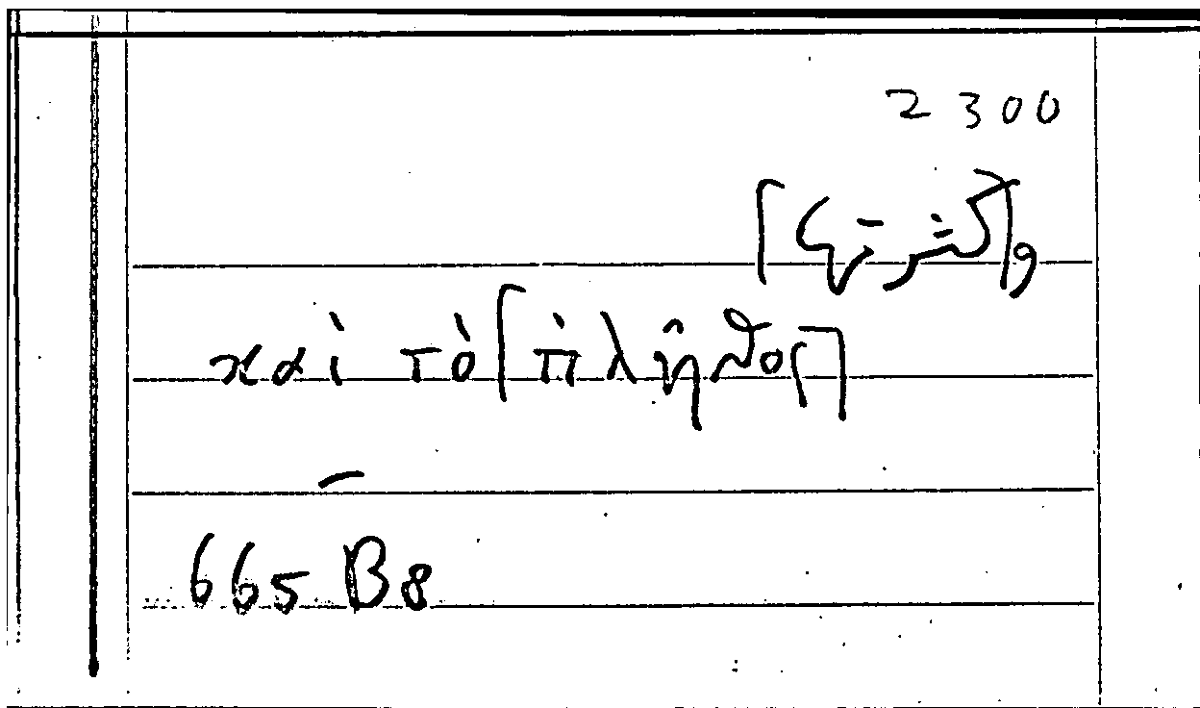 2300
καὶ τὸ ⌈πλῆθος⌉
665 B8